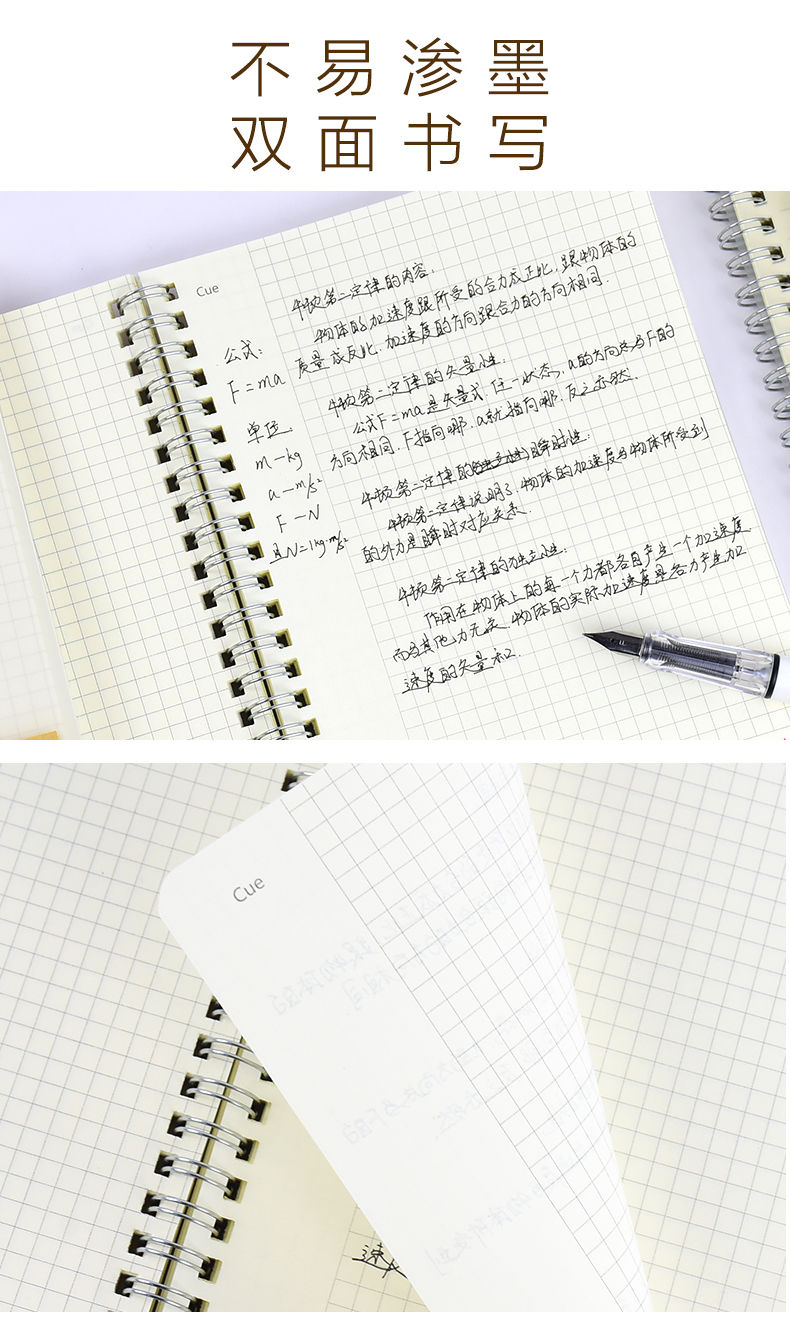 不易渗墨
双面书写
Cue
公式：
F=ma
单位：
m—kg
a—m/s²
F—N
且N=1kg·m/s²
牛顿第二定律的内容：
物体的加速度跟所受的合力成正比，跟物体的
质量成反比，加速度的方向跟合力的方向相同．
牛顿第二定律的矢量性：
公式F=ma是矢量式 任一状态，a的方向总与F的
方向相同，F指向哪，a就指向哪．反之亦然．
牛顿第二定律的瞬时性：
牛顿第二定律说明了，物体的加速度与物体所受到
的外力是瞬时对应关系．
牛顿第二定律的独立性：
作用在物体上的每一个力都各自产生一个加速度
而与其他力无关．物体的实际加速度是各力产生加
速度的矢量和．
Cue
速